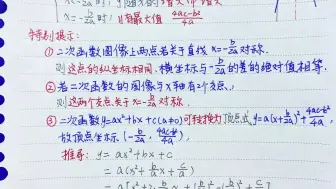 x=-b/2a时, y有最大值 4ac-b²/4a
特别提示:
①二次函数图像上两点若关于直线 x=-b/2a 对称.
则这点的纵坐标相同, 横坐标与-b/2a的差的绝对值相等.
②若二次函数的图像与x轴有2个交点,
则这两个交点关于x=-b/2a对称.
③二次函数y=ax²+bx+c(a≠0)可转换为顶点式y=a(x+b/2a)²+4ac-b²/4a,
故顶点坐标(-b/2a, 4ac-b²/4a)
推导: y=ax²+bx+c
=a(x²+b/a x+c/a)